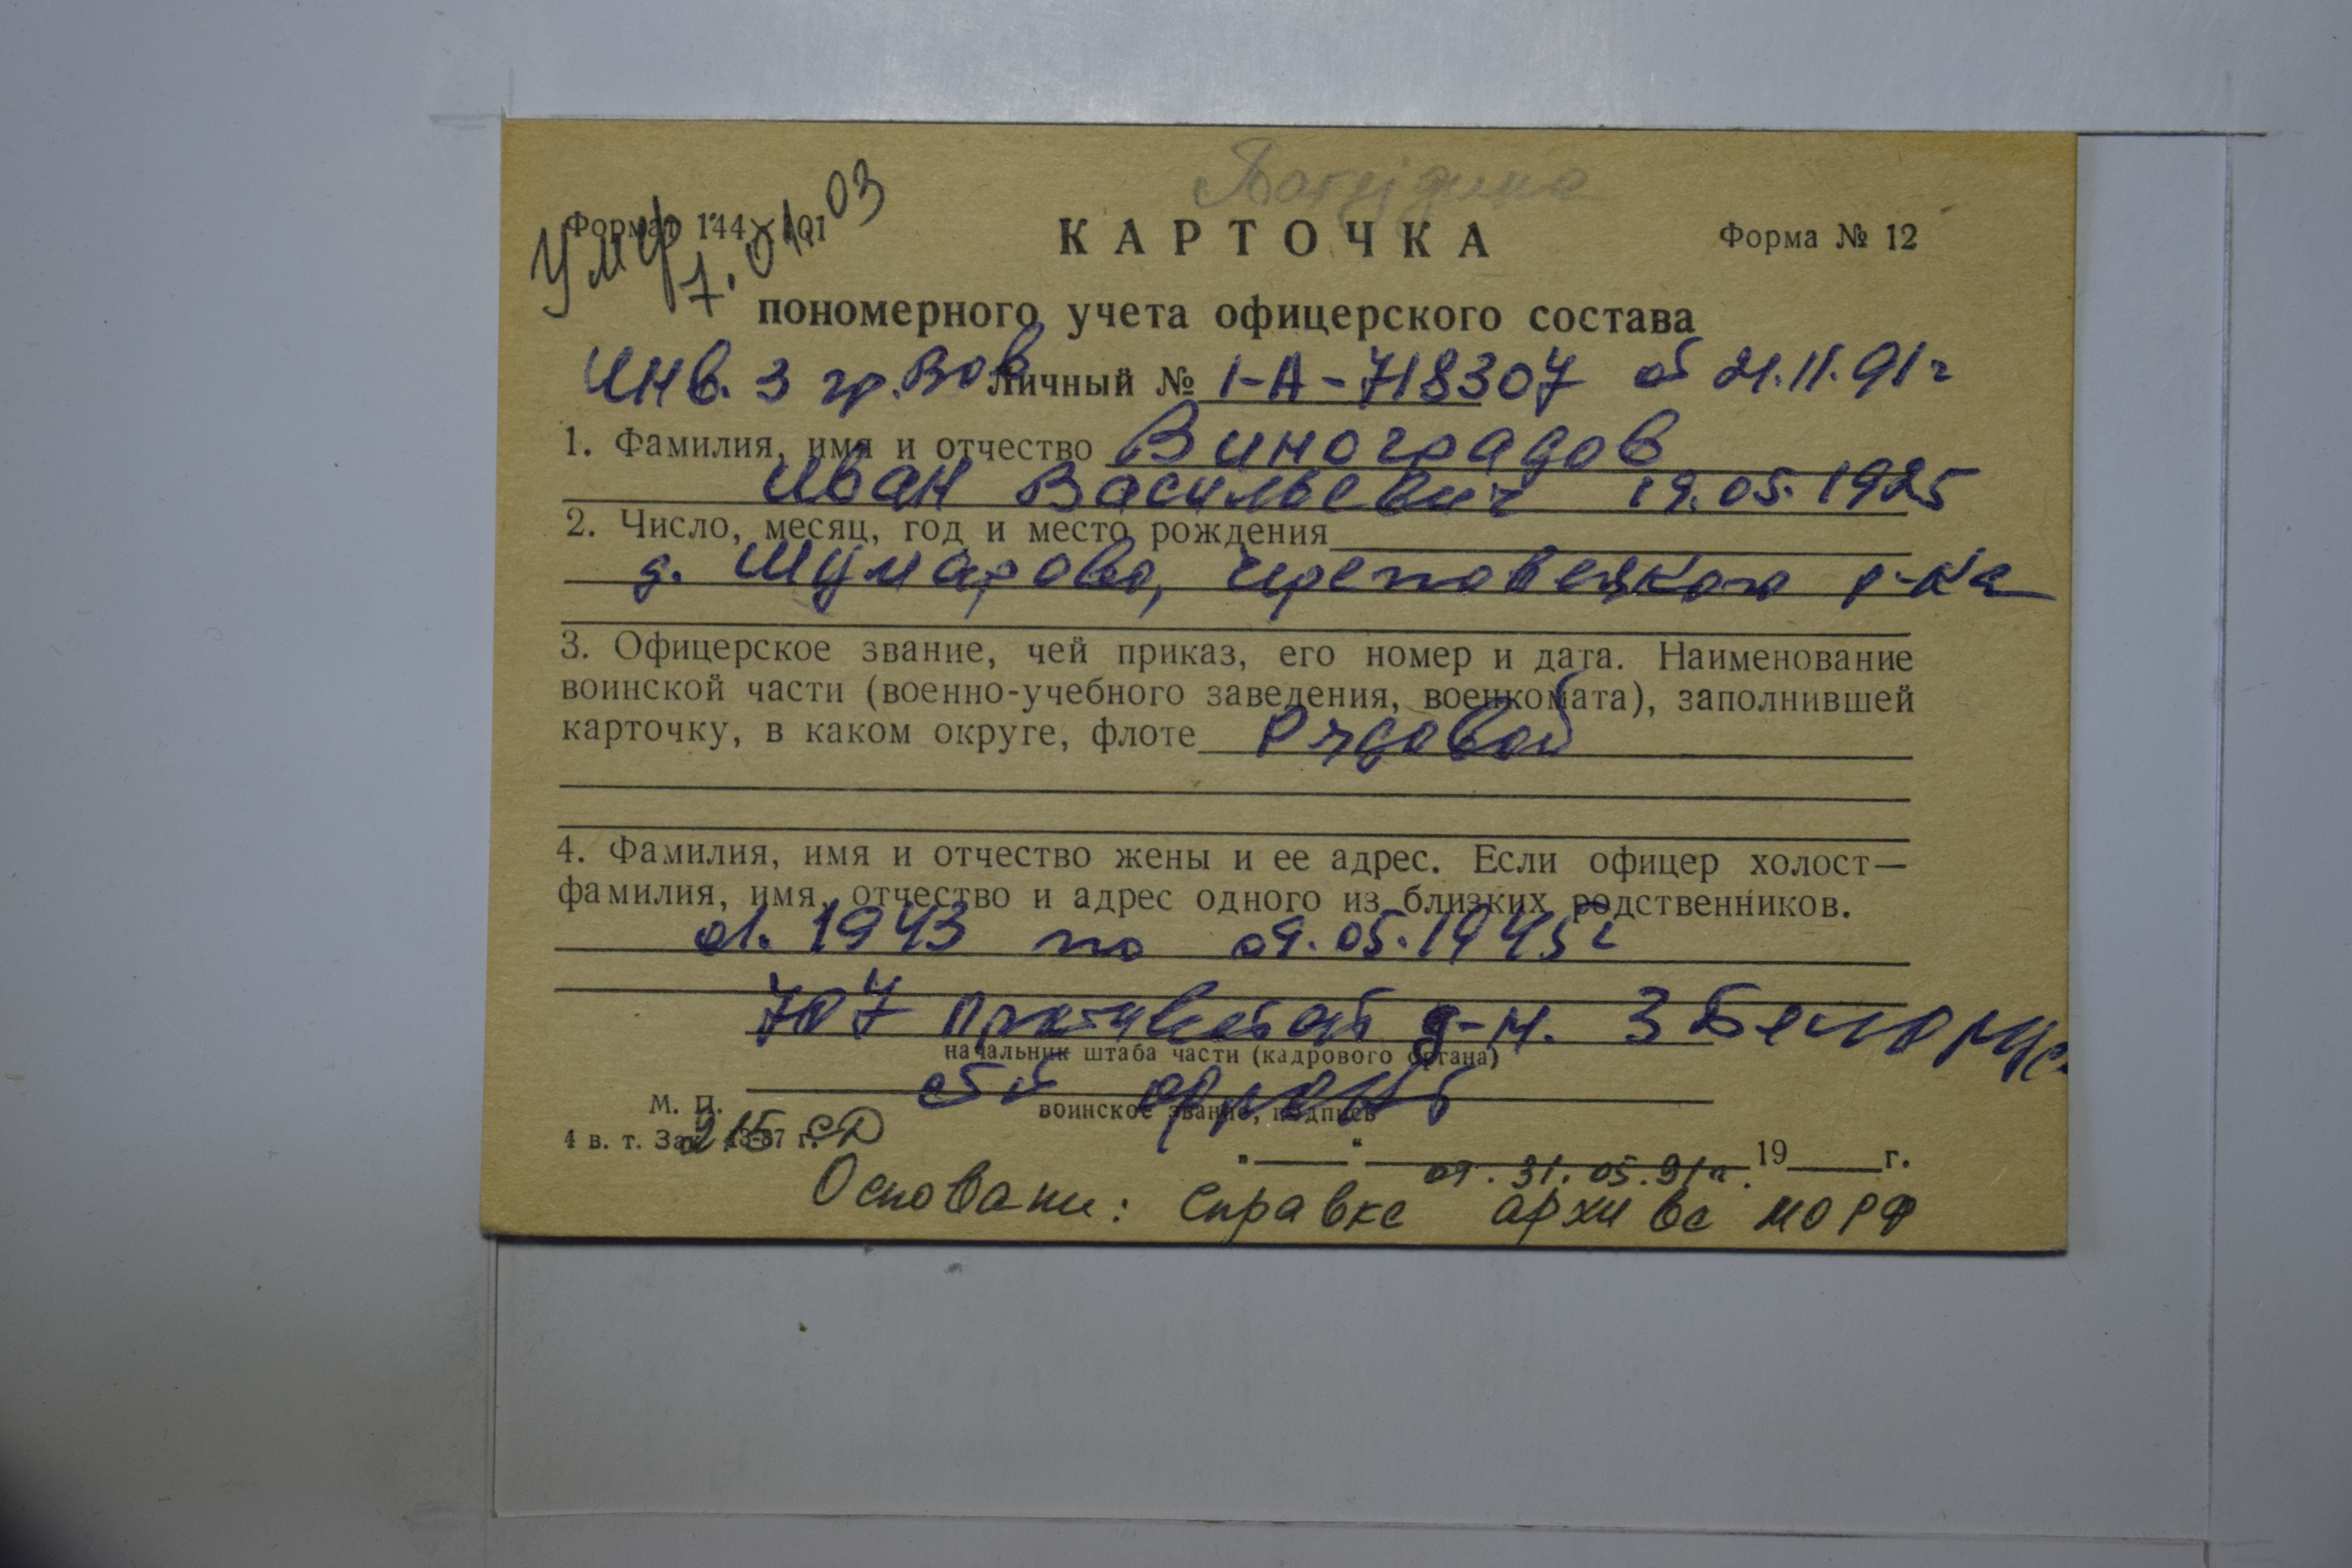 Формат 144×101
Умер 7.01.03
КАРТОЧКА
Форма № 12
пономерного учета офицерского состава
Инв. 3 гр. Вов Личный № 1-А-718307 от 21.11.91г
1. Фамилия, имя и отчество Виноградов
Иван Васильевич 19.05.1925
2. Число, месяц, год и место рождения
д. Шумарово, Череповецкого р-на
3. Офицерское звание, чей приказ, его номер и дата. Наименование
воинской части (военно-учебного заведения, военкомата), заполнившей
карточку, в каком округе, флоте Рядовой
4. Фамилия, имя и отчество жены и ее адрес. Если офицер холост—
фамилия, имя, отчество и адрес одного из близких родственников.
01.1943 по 09.05.1945г
707 д-н. 3 Белорус
начальник штаба части (кадрового органа)
ст фронт
воинское звание, подпись
М. П.
215 СД
4 в. т. Зак. 43-87 г.
„ “ 19 г.
от. 31.05.91г.
Основани: справка архива МО РФ